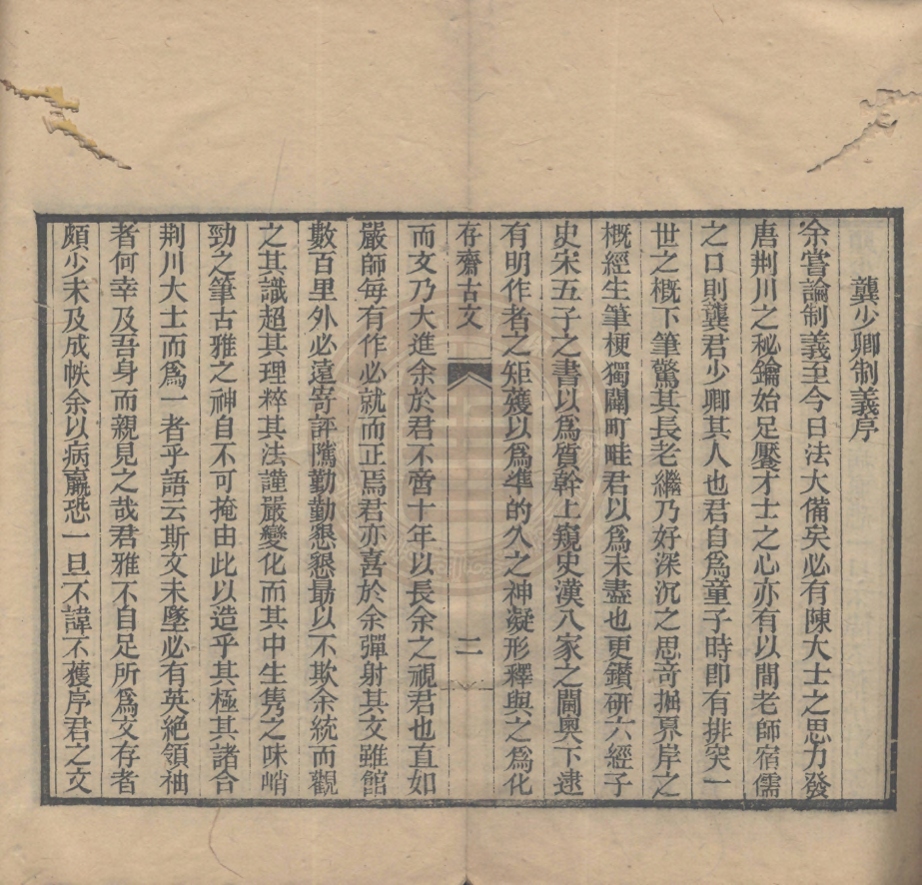 龔少卿制義序
余嘗論制義至今日法大備矣必有陳大士之思力發
唐荆川之秘鑰始足饜才士之心亦有以間老師宿儒
之口則龔君少卿其人也君自爲童子時卽有排突一
世之槪下筆驚其長老繼乃好深沉之思奇掘夐岸之
槪經生筆梗獨闢町畦君以爲未盡也更鑽研六經子
史宋五子之書以爲質幹上窺史漢八家之閫奧下逮
有明作者之矩矱以爲準的久之神凝形釋與之爲化
存齋古文 二
而文乃大進余於君不啻十年以長余之視君也直如
嚴師每有作必就而正焉君亦喜於余彈射其文雖館
數百里外必遠寄評隲勤勤懇懇勗以不欺余統而觀
之其識超其理粹其法謹嚴變化而其中生雋之味峭
勁之筆古雅之神自不可掩由此以造乎其極其諸合
荆川大士而爲一者乎語云斯文未墜必有英絶領袖
者何幸及吾身而親見之哉君雅不自足所爲文存者
頗少未及成帙余以病羸恐一旦不諱不獲序君之文